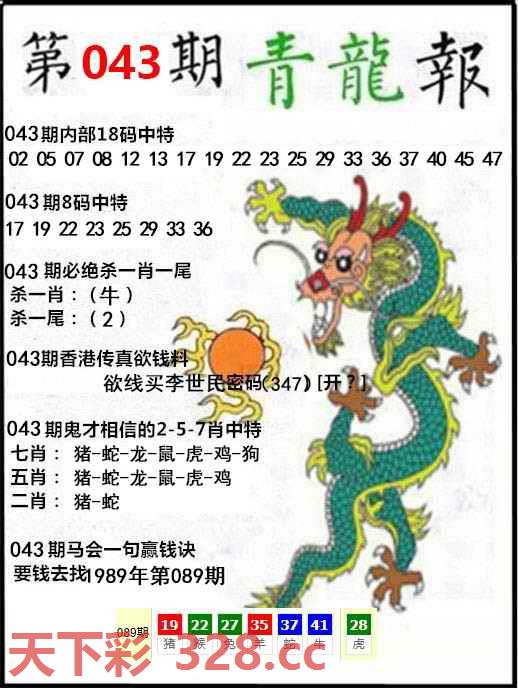 第043期青龍報
043期内部18码中特
02 05 07 08 12 13 17 19 22 23 25 29 33 36 37 40 45 47
043期8码中特
17 19 22 23 25 29 33 36
043期必绝杀一肖一尾
杀一肖：（牛）
杀一尾：（2）
043期香港传真欲钱料
欲线买李世民密码(347)[开?]
043期鬼才相信的2-5-7肖中特
七肖： 猪-蛇-龙-鼠-虎-鸡-狗
五肖： 猪-蛇-龙-鼠-虎-鸡
二肖： 猪-蛇
043期马会一句赢钱诀
要钱去找1989年第089期
089期 19 22 27 35 37 41 28
猪 猴 兔 羊 蛇 牛 虎
天下彩 328.cc